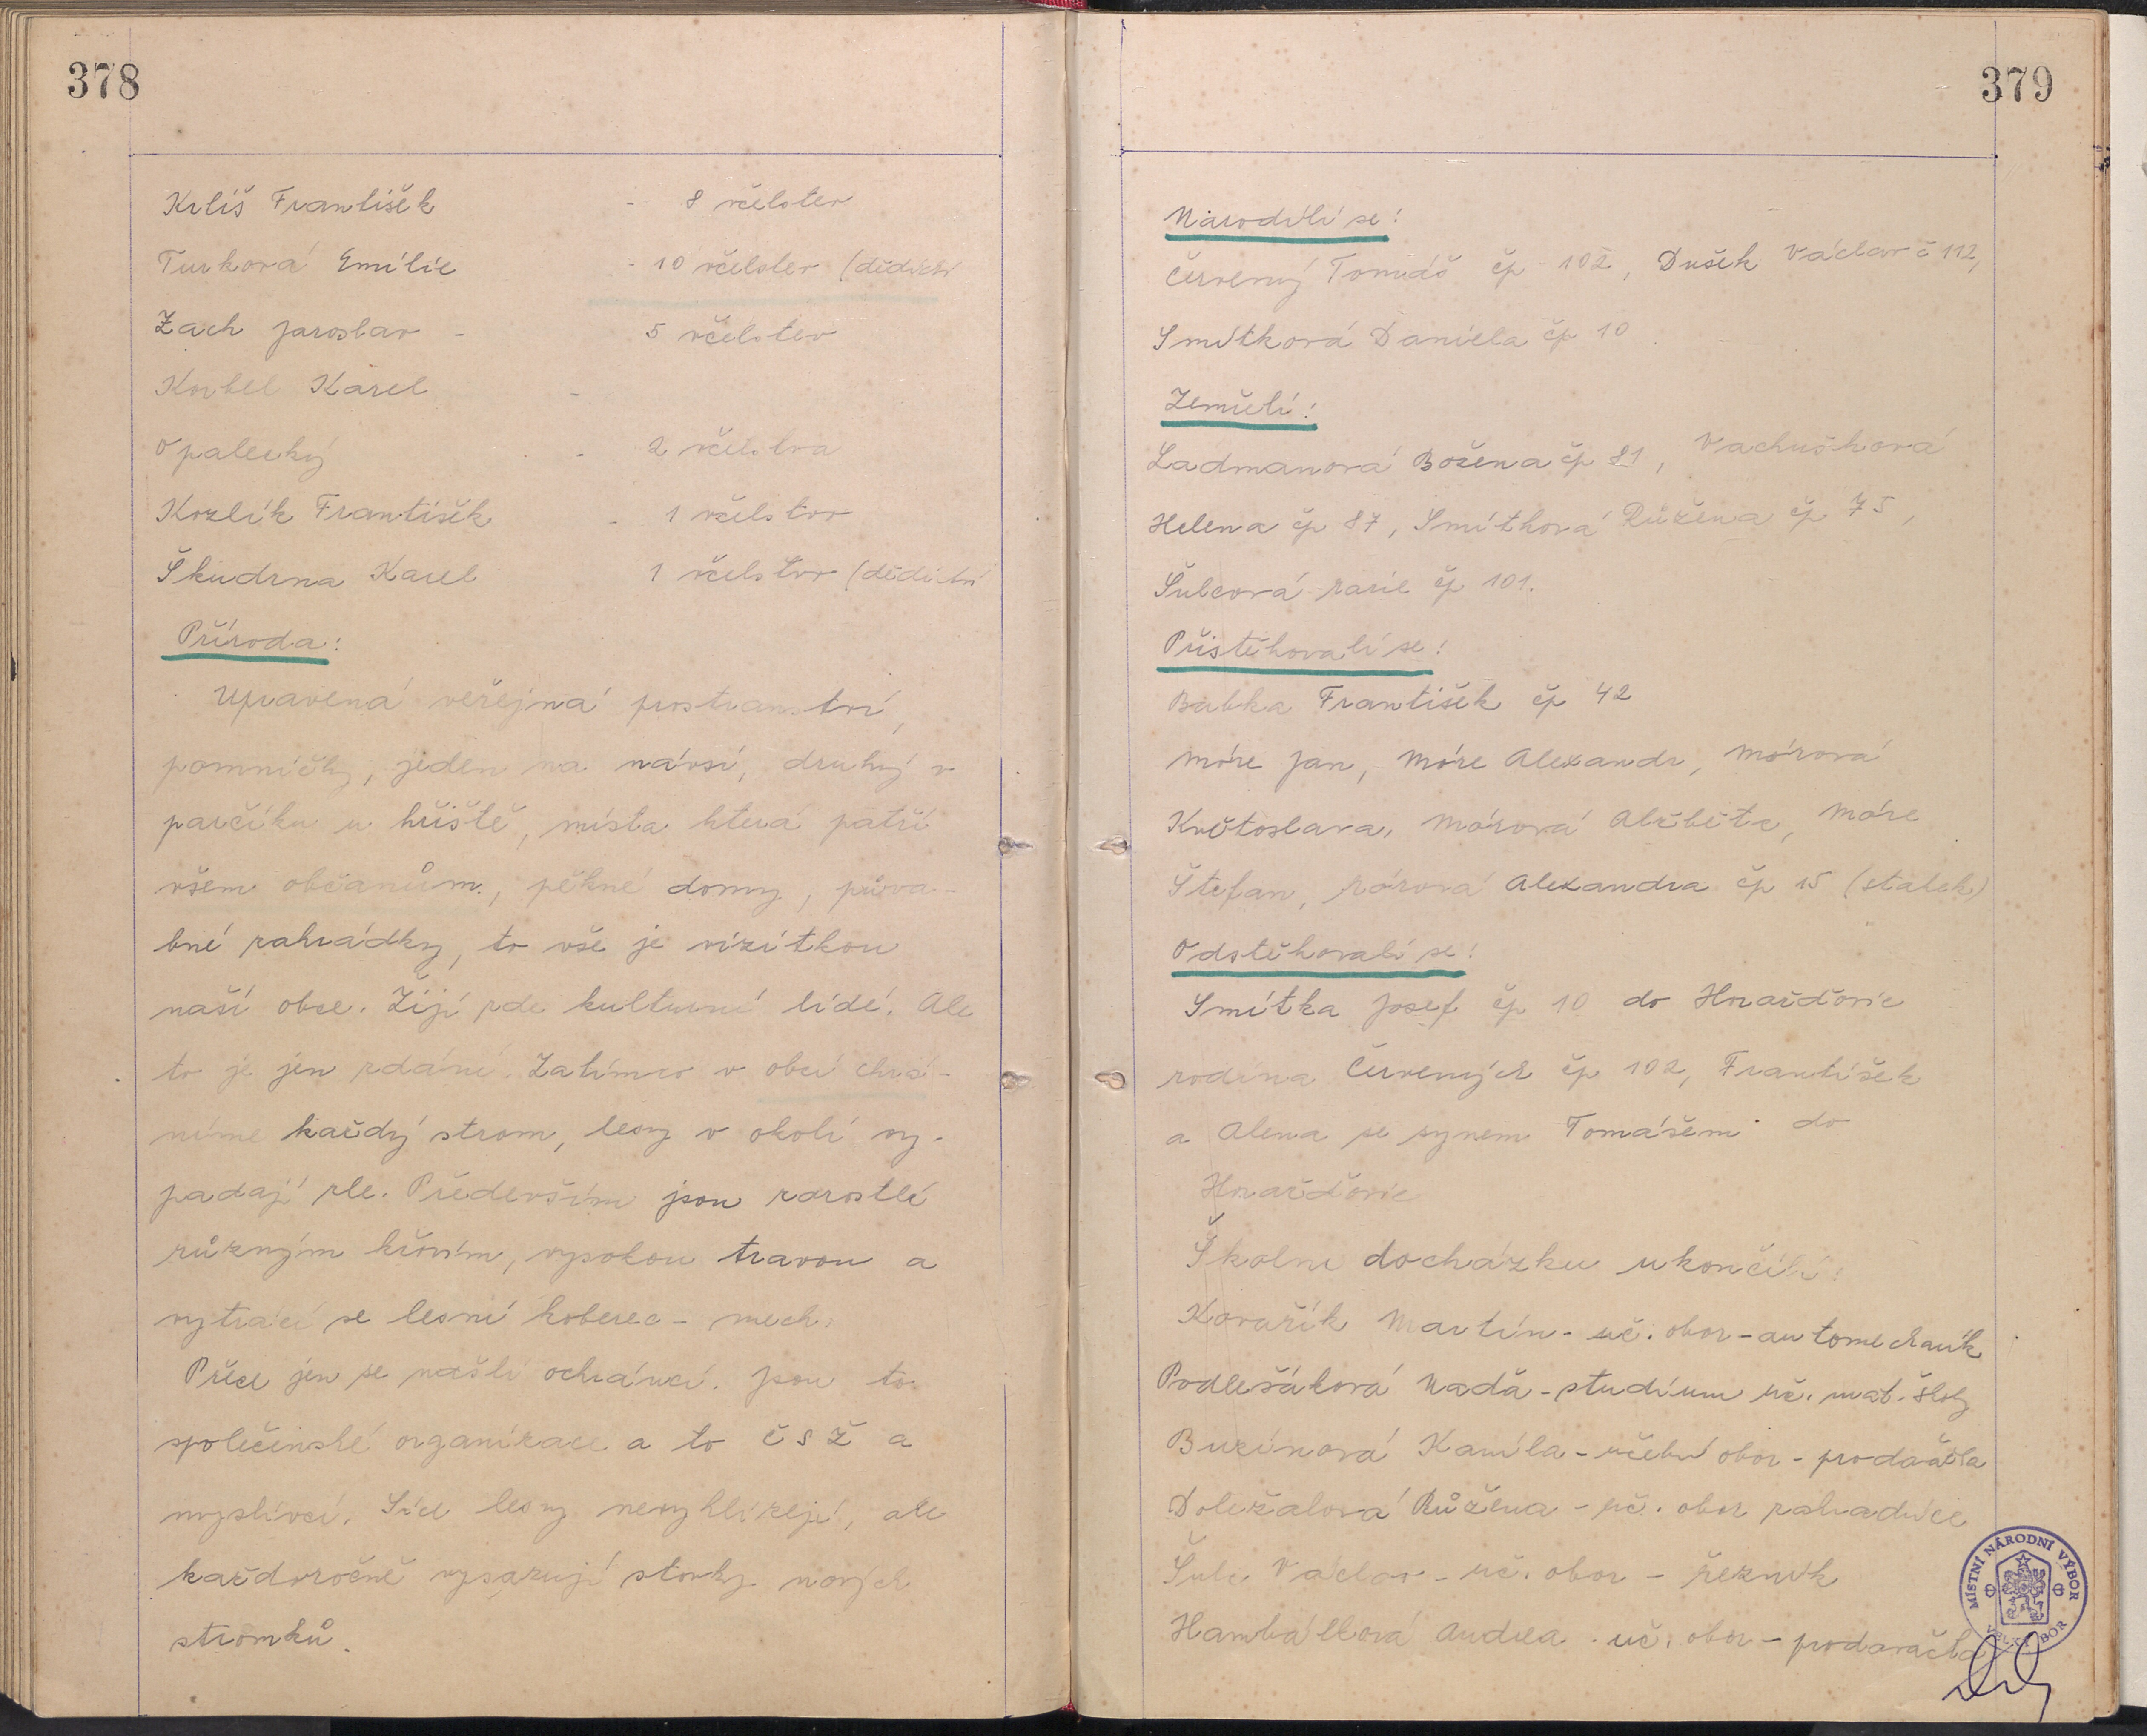 378
Krliš František - 8 včelstev
Turková Emílie - 10 včelstev (dědictví
Zach Jaroslav - 5 včelstev
Korbel Karel -
Opalecký - 2 včelstva
Kozlík František - 1 včelstvo
Škudrna Karel 1 včelstvo (dědictví
Příroda:
Upravená veřejná prostranství,
pomníčky, jeden na návsi, druhý v
parčíku u hřiště, místa která patří
všem občanům, pěkné domy, půva-
bné zahrádky, to vše je vizitkou
naší obce. Žijí zde kulturní lidé. Ale
to je jen zdání. Zatímco v obci chrá-
níme každý strom, lesy v okolí vy-
padají zle. Především jsou zarostlé
různým křovím, vysokou travou a
vytrácí se lesní koberec - mech.
Přece jen se našli ochránci. Jsou to
společenské organizace a to ČSŽ a
myslivci. Sice lesy nevyhlížejí, ale
každoročně vysazují stovky nových
stromků.
379
Narodili se:
Červený Tomáš čp 102, Dušek Václav č 112,
Smítková Daniela čp 10.
Zemřeli:
Ladmanová Božena čp 81, Vachušková
Helena čp 87, Smítková Růžena čp 75,
Šulcová Marie čp 101.
Přistěhovali se:
Babka František čp 42
Móre Jan, Móre Alexandr, Mórová
Květoslava, Mórová Alžběta, Móre
Štefan, Mórová Alexandra čp 15 (statek)
Odstěhovali se:
Smítka Josef čp 10 do Horažďovic
rodina Červených čp 102, František
a Alena se synem Tomášem do
Horažďovic
Školní docházku ukončili:
Kovařík Martin - uč. obor - automechanik
Podlešáková Naďa - studium uč. mat. školy
Buzínová Kamila - učební obor - prodavačka
Doležalová Růžena - uč. obor zahradnice
Šulc Václav - uč. obor - řezník
Hambálková Andrea - uč. obor - prodavačka
MÍSTNÍ NÁRODNÍ VÝBOR
VELKÝ BOR